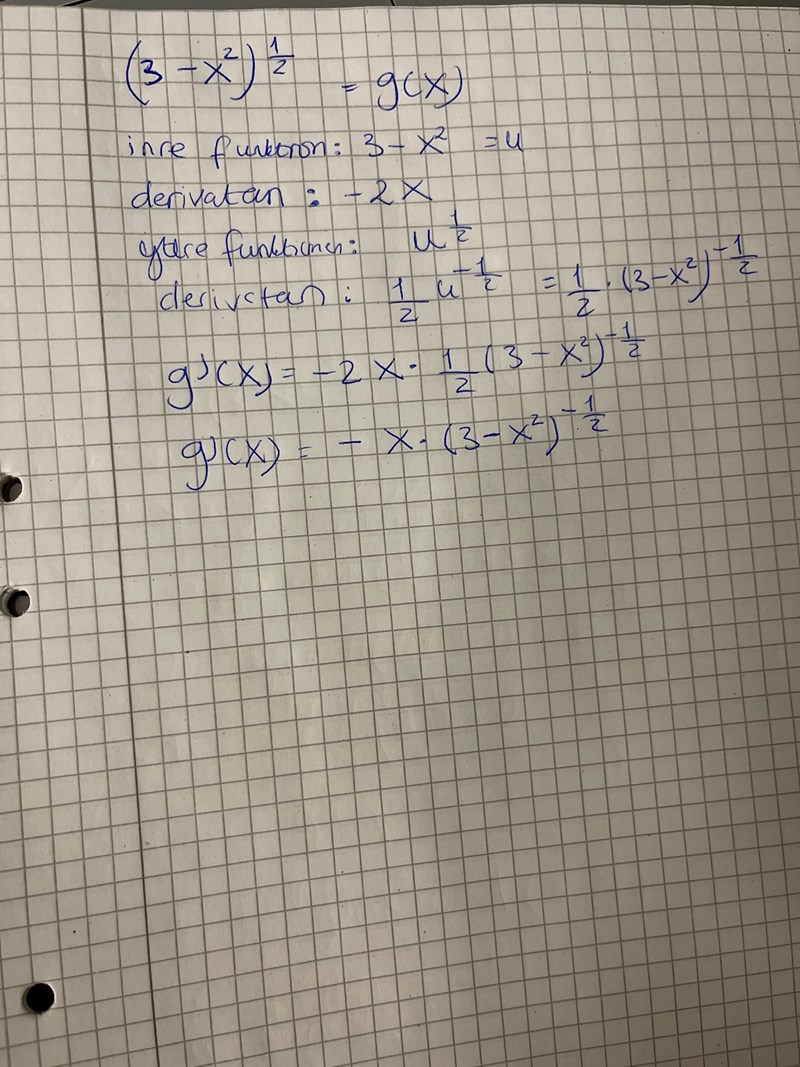 (3 - x²)^(1/2) = g(x)
inre funktion: 3 - x² = u
derivatan : -2x
yttre funktionen: u^(1/2)
derivatan : 1/2 u^(-1/2) = 1/2 · (3-x²)^(-1/2)
g'(x) = -2x · 1/2 (3 - x²)^(-1/2)
g'(x) = - x · (3 - x²)^(-1/2)